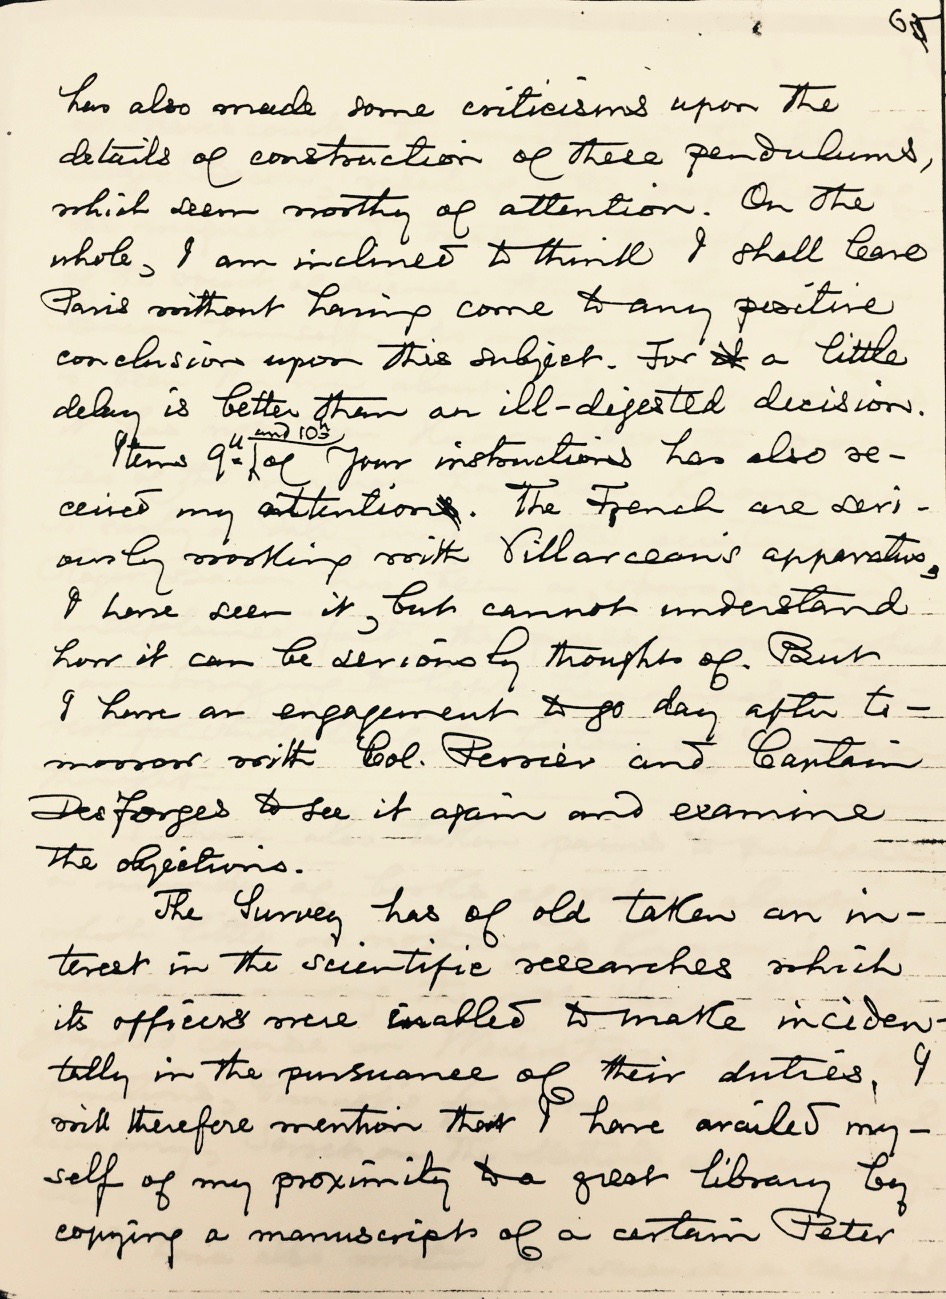 65
has also made some criticisms upon the
details of construction of these pendulums,
which seem worthy of attention. On the
whole, I am inclined to think I shall leave
Paris without having come to any positive
conclusion upon this subject. For a little
delay is better than an ill-digested decision.
Items 9th and 10th of your instructions has also re-
ceived my attention. The French are seri-
ously working with Villarceau's apparatus,
I have seen it, but cannot understand
how it can be seriously thought of. But
I have an engagement to go day after to-
morrow with Col. Perrier and Captain
Des Forges to see it again and examine
the objections.
The Survey has of old taken an in-
terest in the scientific researches which
its officers were enabled to make inciden-
tally in the pursuance of their duties, I
will therefore mention that I have availed my-
self of my proximity to a great library by
copying a manuscript of a certain Peter